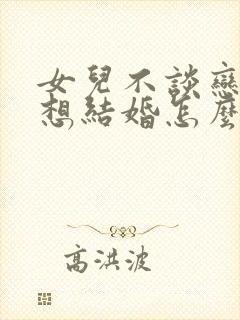 女兒不談戀
想結婚怎麼
高洪波